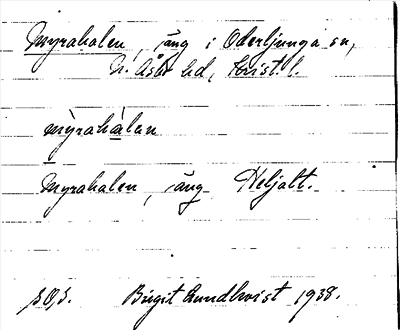 Myrahalen, äng i Oderljunga sn,
N. Åsbo hd, Krist. l.
myrahalan
Myrahalen, äng Heljalt.
s. 8, 3.
Birgit Lundkvist 1938.